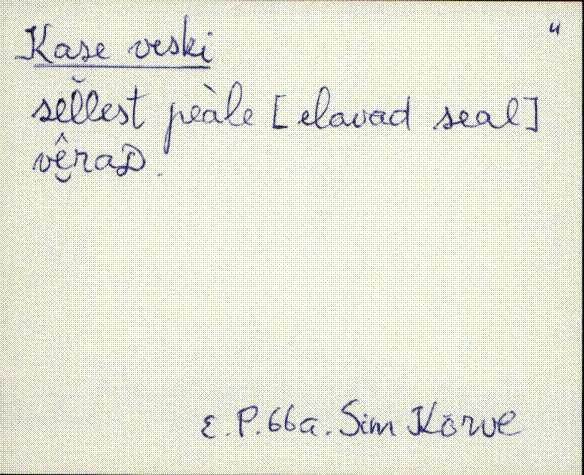 Kase veski "
sĕllest peàle [elavad seal]
vê̮raD.
ε. P. 66a. Sim Körve